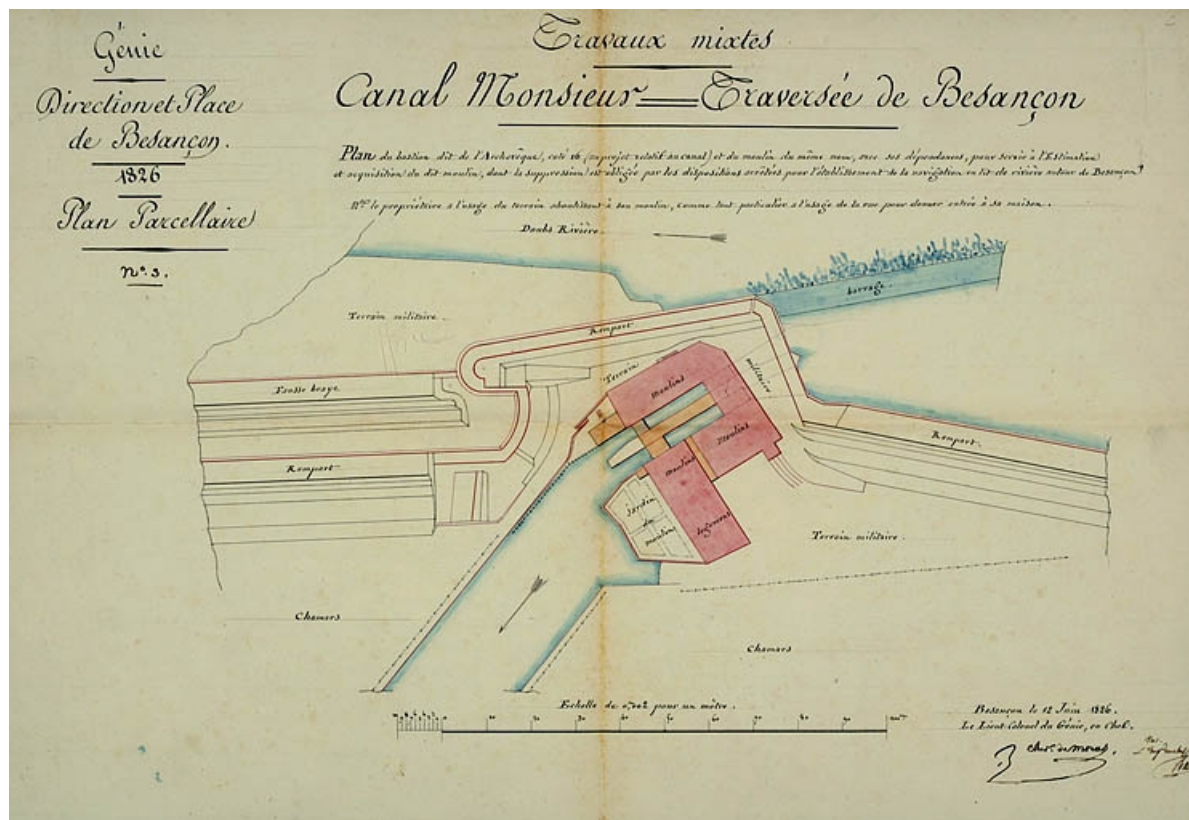 Génie
Direction et Place
de Besançon.
1826
Plan Parcellaire
N.° 3.
Travaux mixtes
Canal Monsieur = Traversée de Besançon
Plan du bastion dit de l'Archevêque, coté 16 (au projet relatif au canal) et du moulin du même nom, avec ses dépendances, pour servir à l'Estimation
et acquisition du dit moulin, dont la suppression est obligée par les dispositions arrêtées pour l'établissement de la navigation en lit de rivière autour de Besançon.
le propriétaire a l'usage du terrain aboutissant à son moulin, comme tout particulier a l'usage de la rue pour donner entrée à sa maison.
Doubs Rivière.
barrage.
Terrain militaire.
Rempart
Fausse braye
Terrain
militaire
Moulins
Moulins
Moulins
Rempart
Rempart
Jardin
du
moulin
logement
Terrain militaire.
Chamars
Chamars
Echelle de 0,002 pour un mètre.
10 20 30 40 50 60 70 80 90
Besançon le 12 Juin 1826.
Le Lieut. Colonel du Génie, en Chef.
Chev. de Moras.